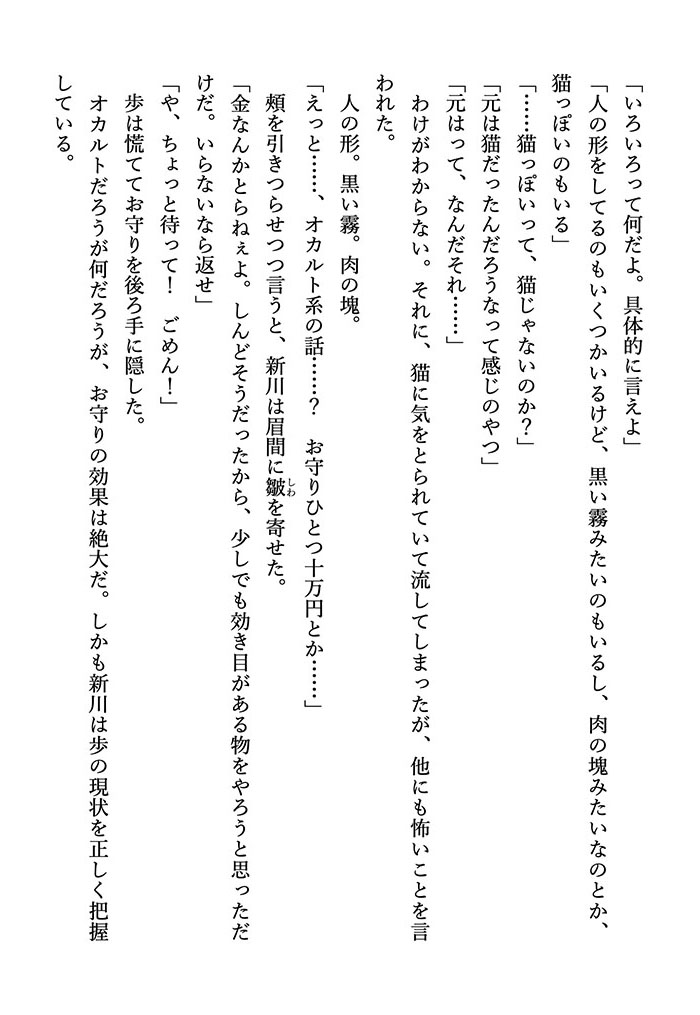 「いろいろって何だよ。具体的に言えよ」
「人の形をしてるのもいくつかいるけど、黒い霧みたいのもいるし、肉の塊みたいなのとか、
猫っぽいのもいる」
「……猫っぽいって、猫じゃないのか？」
「元は猫だったんだろうなって感じのやつ」
「元はって、なんだそれ……」
　わけがわからない。それに、猫に気をとられていて流してしまったが、他にも怖いことを言
われた。
　人の形。黒い霧。肉の塊。
「えっと……、オカルト系の話……？　お守りひとつ十万円とか……」
　頬を引きつらせつつ言うと、新川は眉間に皺しわを寄せた。
「金なんかとらねぇよ。しんどそうだったから、少しでも効き目がある物をやろうと思っただ
けだ。いらないなら返せ」
「や、ちょっと待って！　ごめん！」
　歩は慌ててお守りを後ろ手に隠した。
　オカルトだろうが何だろうが、お守りの効果は絶大だ。しかも新川は歩の現状を正しく把握
している。